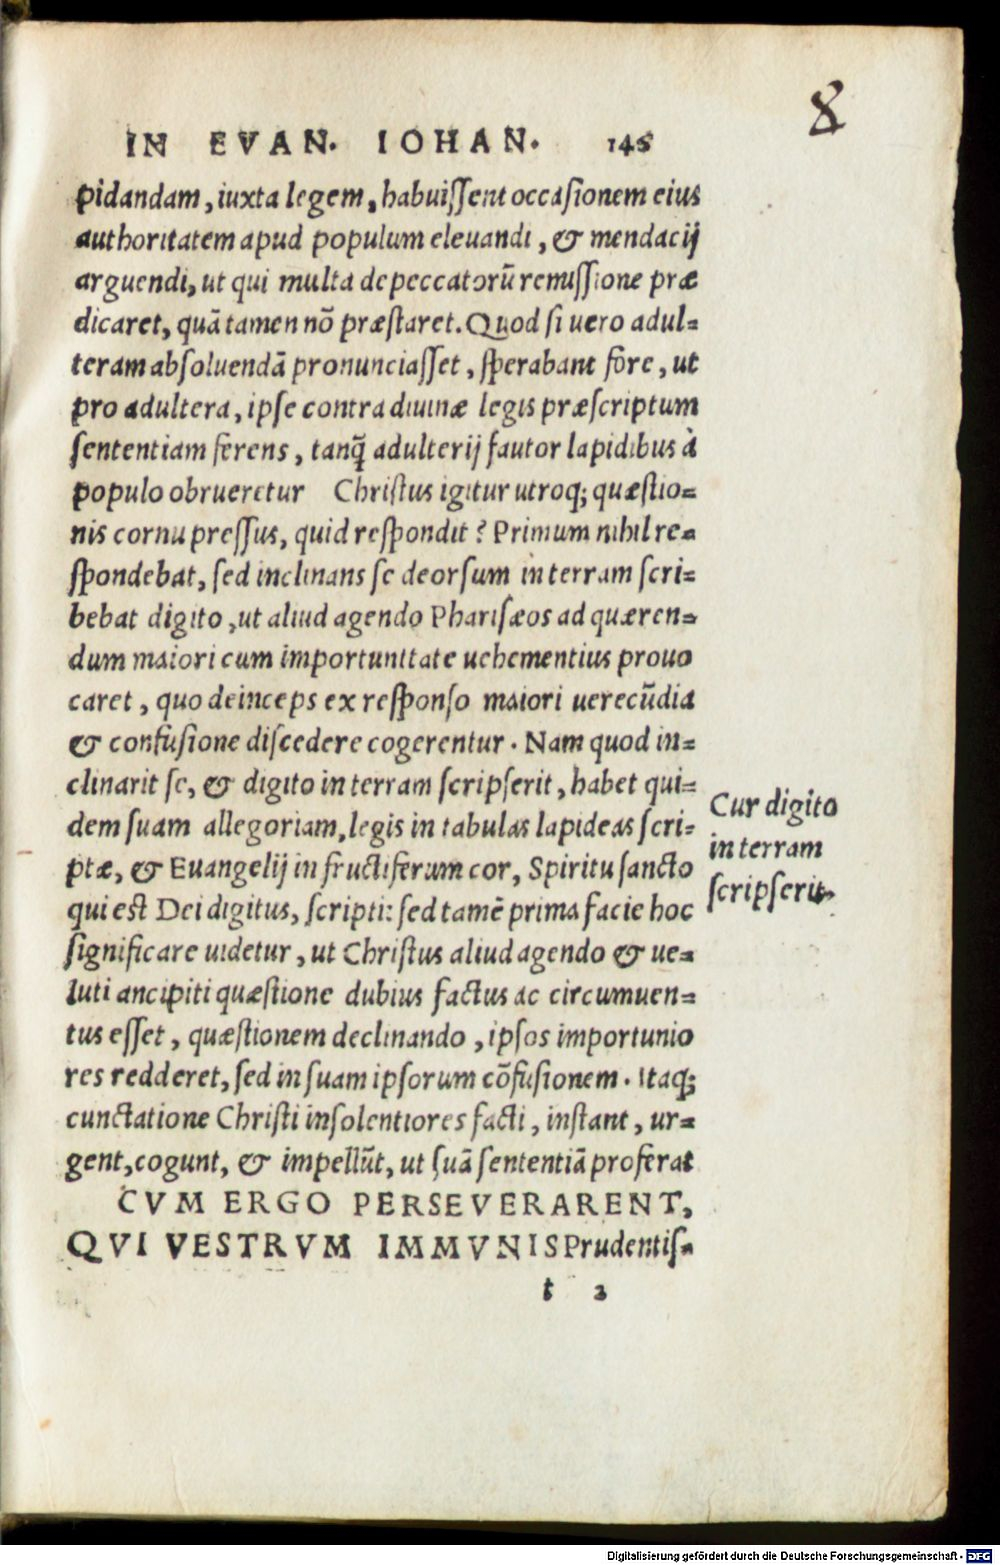 8
IN EVAN. IOHAN. 146
pidandam, iuxta legem, habuiſſent occaſionem eius
authoritatem apud populum eleuandi, & mendacij
arguendi, ut qui multa de peccatorũ remiſſione præ
dicaret, quã tamen nõ præſtaret. Quod ſi uero adul=
teram abſoluendã pronunciaſſet, ſperabant fore, ut
pro adultera, ipſe contra diuinæ legis præſcriptum
ſententiam ferens, tanq̃ adulterij fautor lapidibus à
populo obrueretur Chriſtus igitur utroq; quæſtio=
nis cornu preſſus, quid reſpondit? Primum nihil re=
ſpondebat, ſed inclinans ſe deorſum in terram ſcri=
bebat digito, ut aliud agendo Phariſæos ad quæren=
dum maiori cum importunitate uehementius prouo
caret, quo deinceps ex reſponſo maiori uerecũdia
& confuſione diſcedere cogerentur. Nam quod in=
clinarit ſe, & digito in terram ſcripſerit, habet qui=
dem ſuam allegoriam, legis in tabulas lapideas ſcri=
ptæ, & Euangelij in fructiferum cor, Spiritu ſancto
qui eſt Dei digitus, ſcripti: ſed tamẽ prima facie hoc
ſignificare uidetur, ut Chriſtus aliud agendo & ue=
luti ancipiti quæſtione dubius factus ac circumuen=
tus eſſet, quæſtionem declinando, ipſos importunio
res redderet, ſed in ſuam ipſorum cõfuſionem. Itaq;
cunctatione Chriſti inſolentiores facti, inſtant, ur=
gent, cogunt, & impellũt, ut ſuã ſententiã proferat
CVM ERGO PERSEVERARENT,
QVI VESTRVM IMMVNIS Prudentiſ=
t 2
Cur digito
in terram
ſcripſerit.
Digitalisierung gefördert durch die Deutsche Forschungsgemeinschaft - DFG